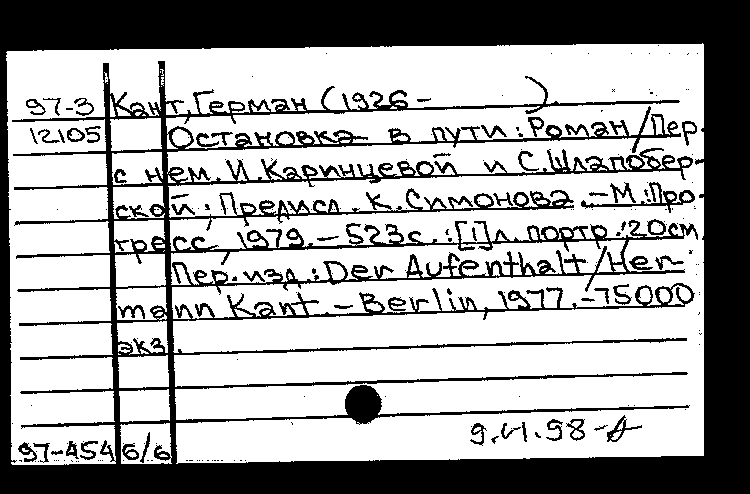 97-3 Кант, Герман (1926- ).
12105 Остановка в пути : Роман / Пер.
с нем. И. Каринцевой и С. Шлапобер-
ской ; Предисл. К. Симонова. – М. : Про-
гресс, 1979. – 523с. : [1]л. портр. ; 20см.
Пер. изд. : Der Aufenthalt / Her-
mann Kant. – Berlin, 1977. – 75000
экз.
97-454 б/б 9.VI.98